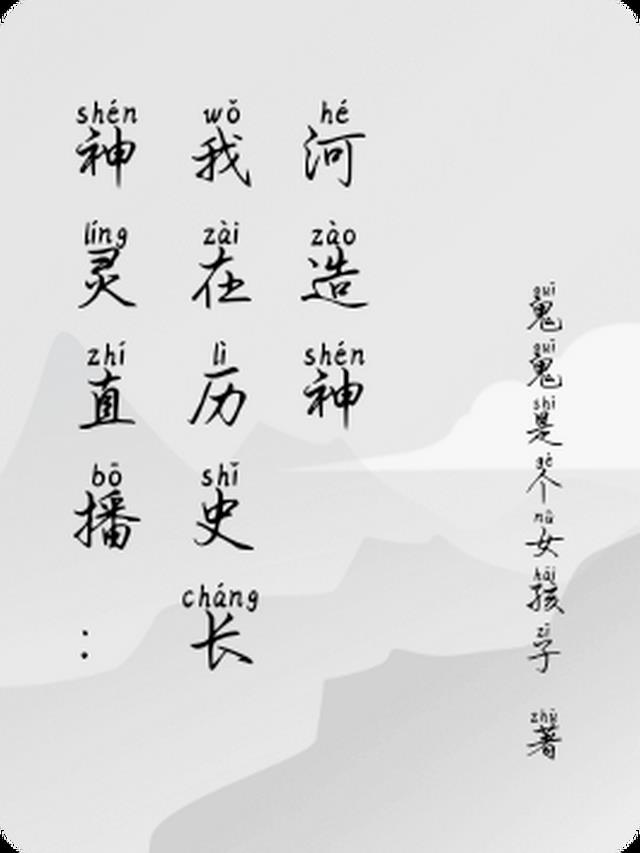 shén líng zhí bō
神灵直播：
wǒ zài lì shǐ cháng
我在历史长
hé zào shén
河造神
guǐ guǐ shì gè nǚ hái zǐ zhù
鬼鬼是个女孩子 著